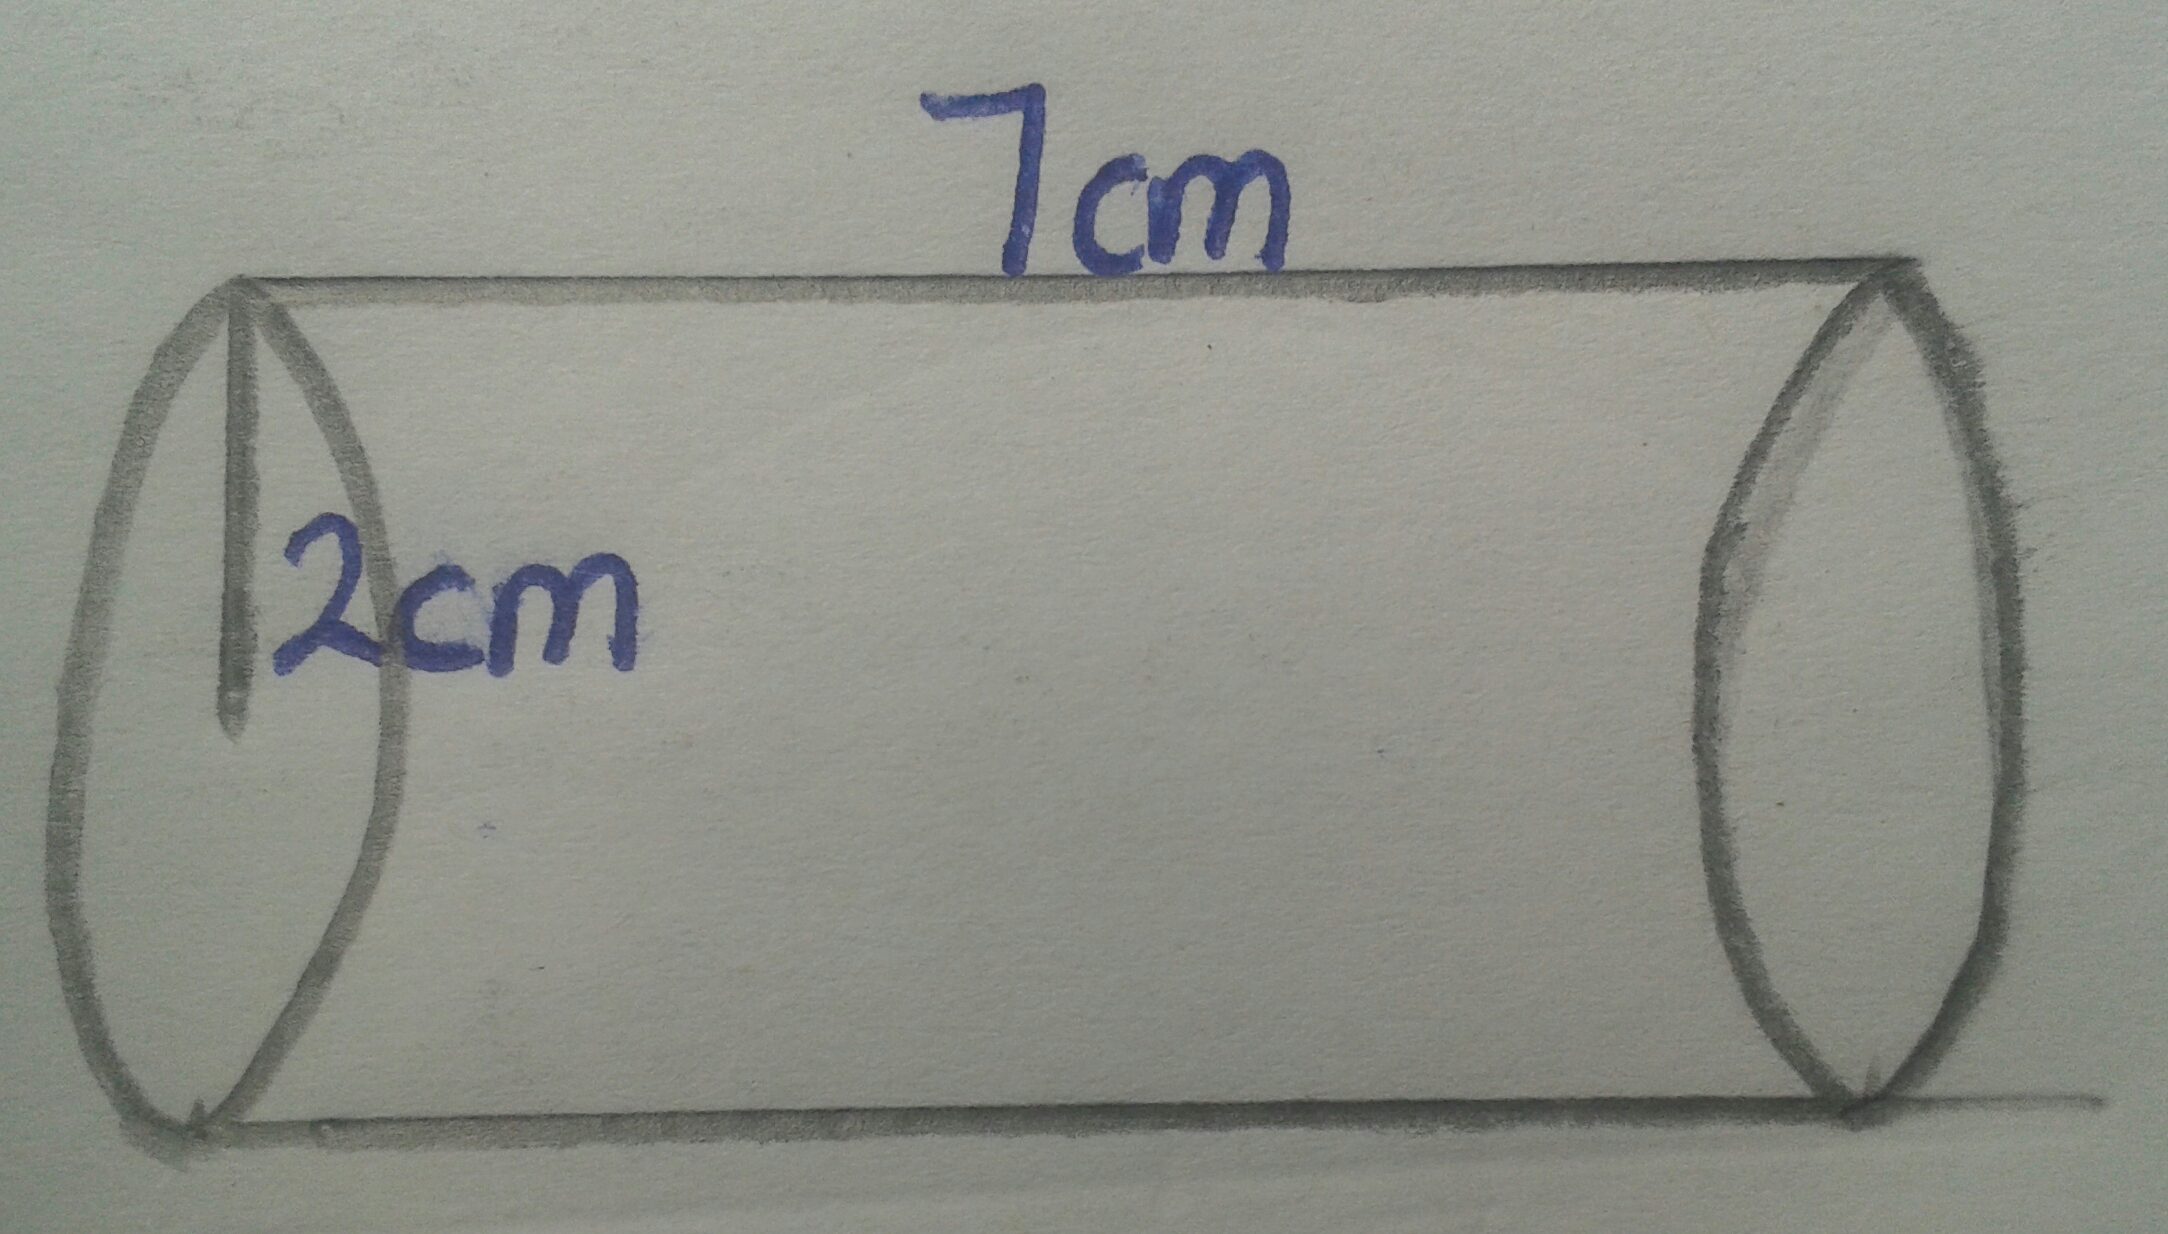 7cm
2cm